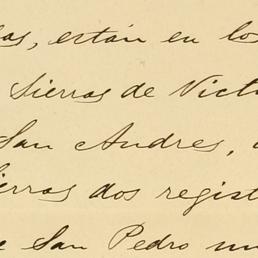 las, están en lo
Sierras de Vict
San Andres,
ierras dos regist
San Pedro un